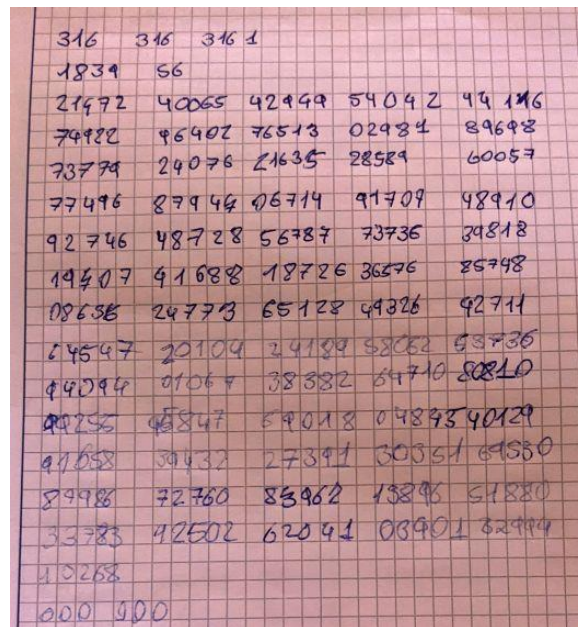 316 316 316 1
1839 56
21972 40065 42949 54042 44146
74922 96402 76513 02981 89698
73779 24076 21635 28589 60057
77496 87944 06714 91709 48910
92746 48728 56787 73736 39818
19407 41688 18726 36576 85748
08636 24773 65128 49326 92711
64547 20104 24189 58062 63736
94094 01067 38382 64710 80810
99255 45847 69018 04843 40129
91658 39432 27391 30351 69530
89986 72760 83962 13896 51880
33783 92502 62041 03901 62994
10268
000 900